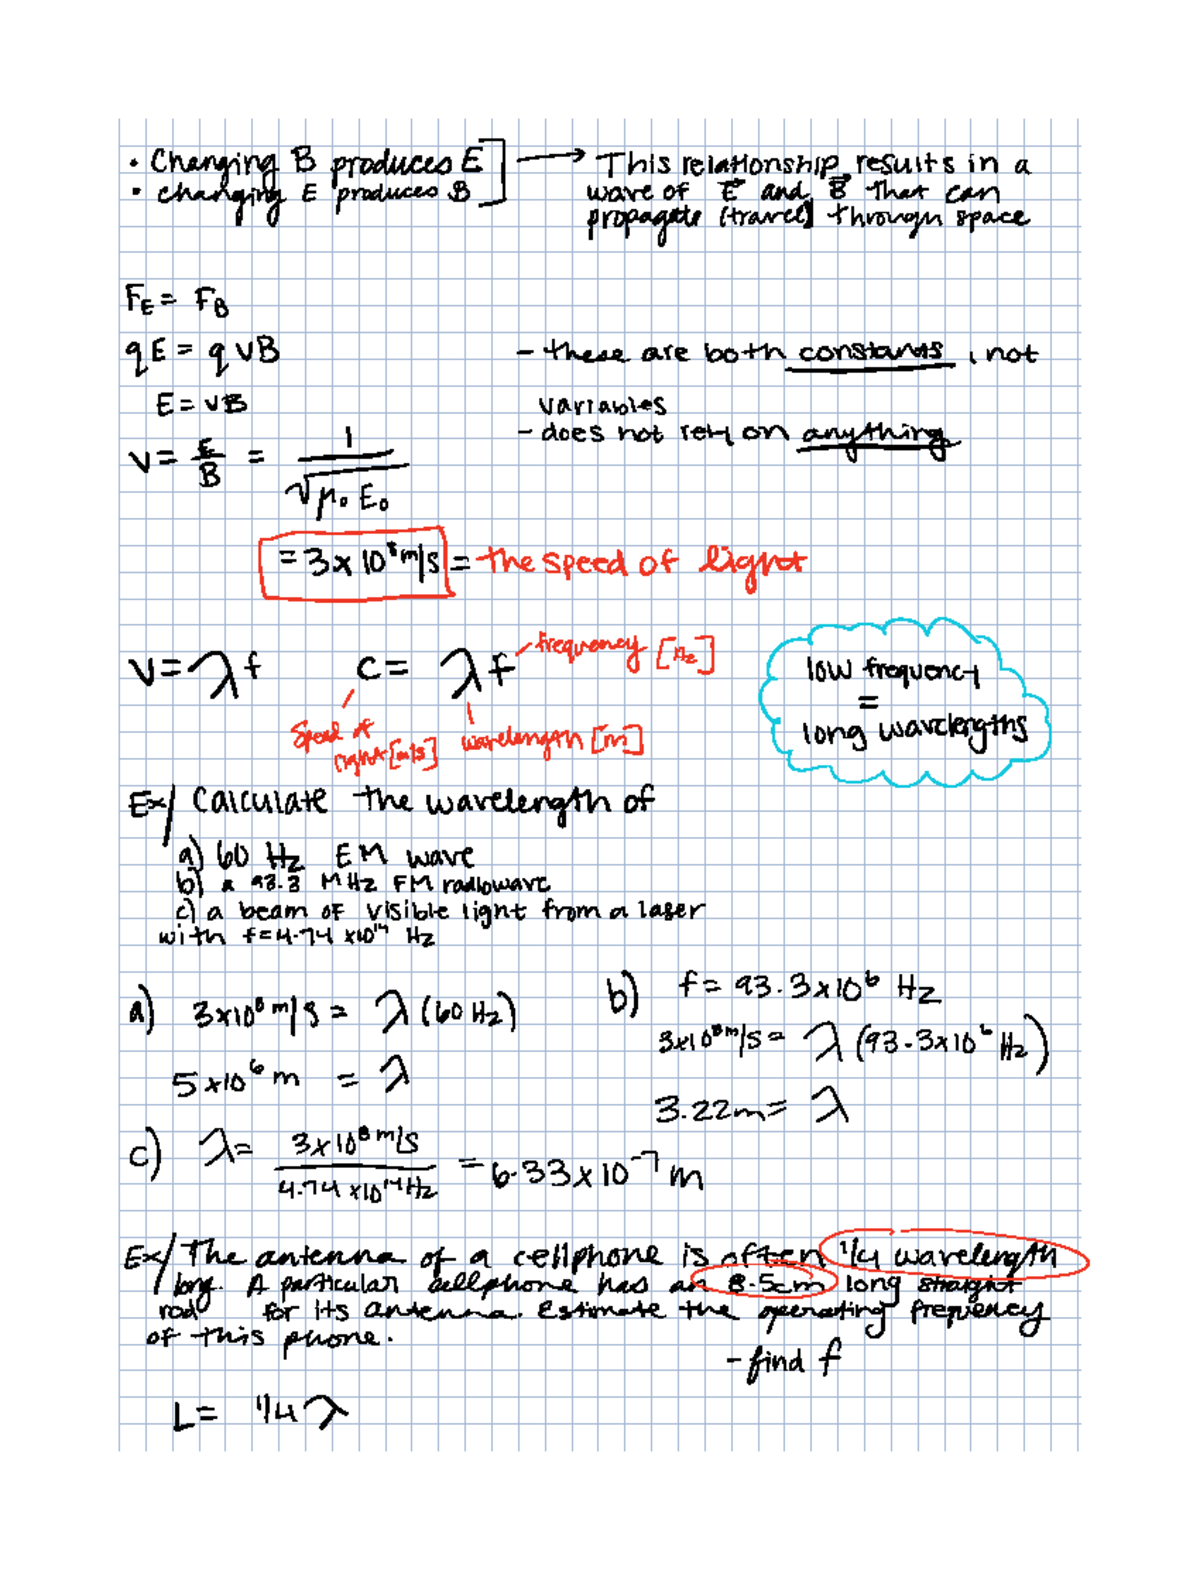 • Changing B produces E → This relationship results in a
• changing E produces B wave of E⃗ and B⃗ that can
propagate (travel) through space
F_E = F_B
qE = qvB
- these are both constants, not
E = vB
variables
- does not rely on anything
v = E/B = 1/√(μ₀ E₀)
= 3x10⁸ m/s = the speed of light
v = λf c = λf
frequency [Hz]
speed of
light [m/s]
wavelength [m]
low frequency
=
long wavelengths
Ex/ Calculate the wavelength of
a) 60 Hz EM wave
b) a 93.3 MHz FM radiowave
c) a beam of visible light from a laser
with f=4.74 x10¹⁴ Hz
a) 3x10⁸ m/s = λ(60 Hz)
5x10⁶ m = λ
b) f = 93.3x10⁶ Hz
3x10⁸ m/s = λ(93.3x10⁶ Hz)
3.22m = λ
c) λ = 3x10⁸ m/s / 4.74 x10¹⁴ Hz = 6.33x10⁻⁷ m
Ex/ The antenna of a cellphone is often 1/4 wavelength
long. A particular cellphone has an 8.5cm long straight
rod for its antenna. Estimate the operating frequency
of this phone.
- find f
L = 1/4 λ